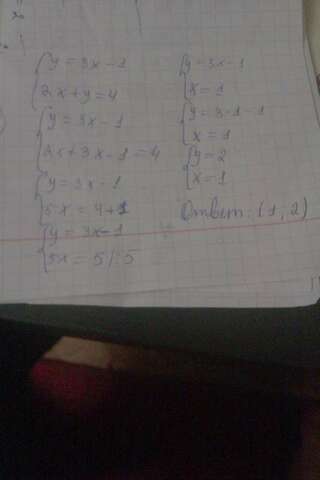 y = 3x - 1
2x + y = 4
y = 3x - 1
2x + 3x - 1 = 4
y = 3x - 1
5x = 4 + 1
y = 3x - 1
5x = 5 |:5
y = 3x - 1
x = 1
y = 3·1 - 1
x = 1
y = 2
x = 1
Ответ: (1; 2)